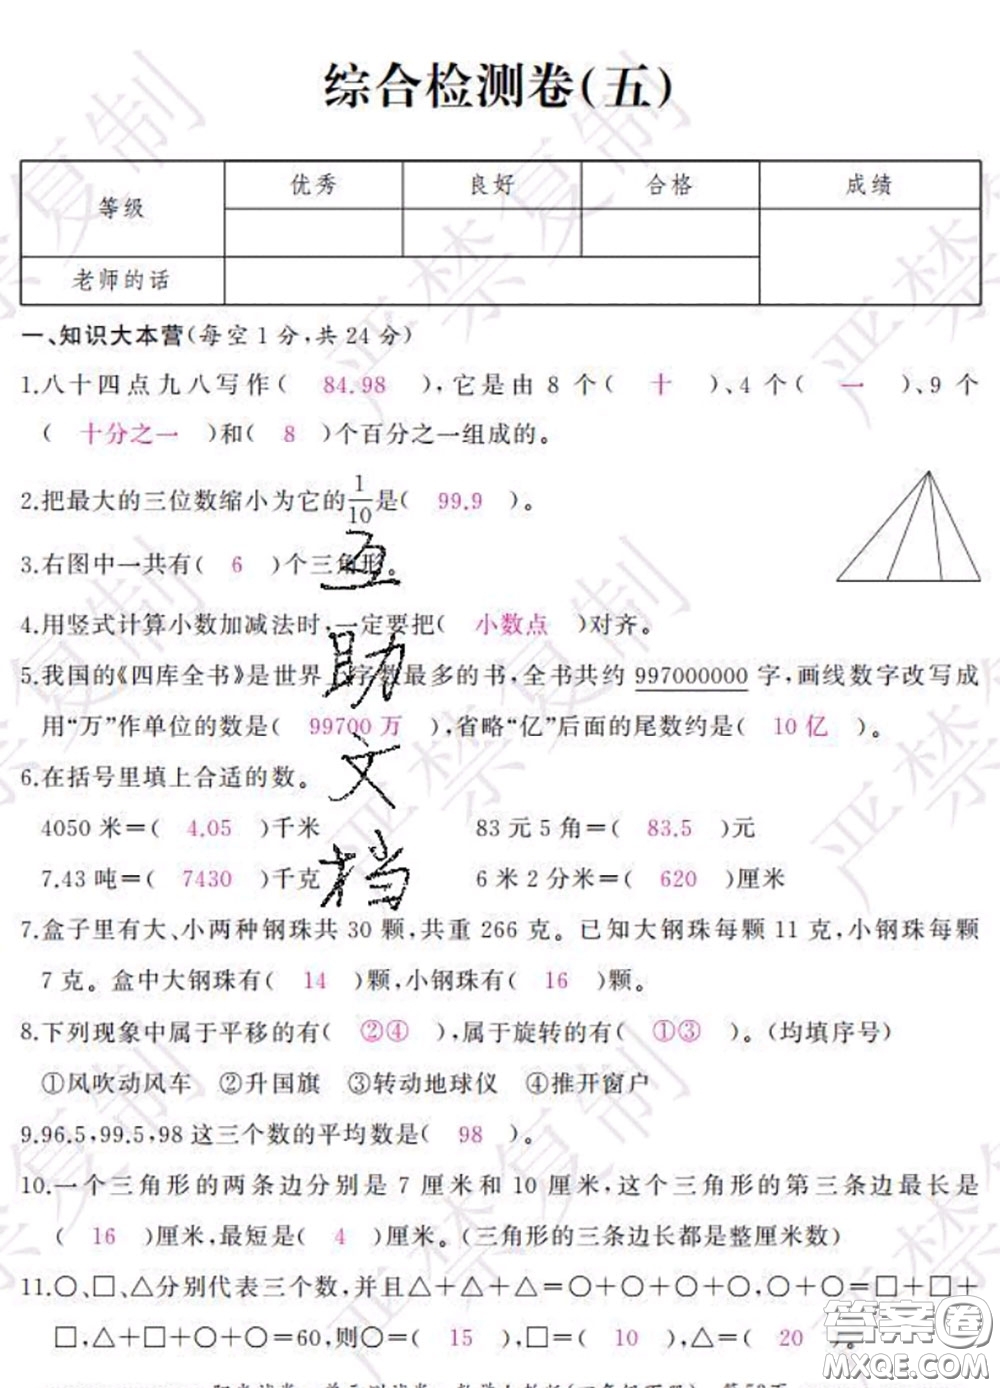 综合检测卷(五)
等级 优秀 良好 合格 成绩
老师的话
一、知识大本营(每空1分,共24分)
1.八十四点九八写作( 84.98 ),它是由8个( 十 )、4个( 一 )、9个
( 十分之一 )和( 8 )个百分之一组成的。
2.把最大的三位数缩小为它的1/10是( 99.9 )。
3.右图中一共有( 6 )个三角形。
4.用竖式计算小数加减法时,一定要把( 小数点 )对齐。
5.我国的《四库全书》是世界上字数最多的书,全书共约997000000字,画线数字改写成
用“万”作单位的数是( 99700万 ),省略“亿”后面的尾数约是( 10亿 )。
6.在括号里填上合适的数。
4050米=( 4.05 )千米 83元5角=( 83.5 )元
7.43吨=( 7430 )千克 6米2分米=( 620 )厘米
7.盒子里有大、小两种钢珠共30颗,共重266克。已知大钢珠每颗11克,小钢珠每颗
7克。盒中大钢珠有( 14 )颗,小钢珠有( 16 )颗。
8.下列现象中属于平移的有( ②④ ),属于旋转的有( ①③ )。(均填序号)
①风吹动风车 ②升国旗 ③转动地球仪 ④推开窗户
9.96.5,99.5,98这三个数的平均数是( 98 )。
10.一个三角形的两条边分别是7厘米和10厘米,这个三角形的第三条边最长是
( 16 )厘米,最短是( 4 )厘米。(三角形的三条边长都是整厘米数)
11.○、□、△分别代表三个数,并且△+△+△=○+○+○+○,○+○=□+□+
□,△+□+○+○=60,则○=( 15 ),□=( 10 ),△=( 20 )。
五
助
文
档
严禁复制
答案圈
MXQE.COM